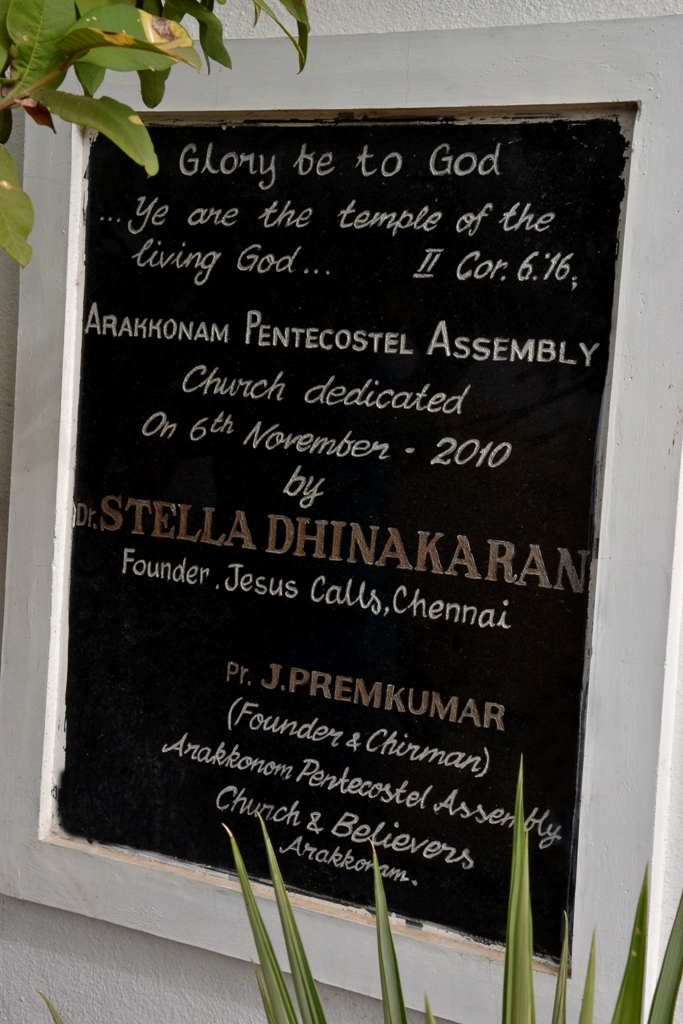 Glory be to God
...Ye are the temple of the
living God... II Cor. 6:16;
ARAKKONAM PENTECOSTEL ASSEMBLY
Church dedicated
On 6th November - 2010
by
Dr. STELLA DHINAKARAN
Founder. Jesus Calls, Chennai
Pr. J. PREMKUMAR
(Founder & Chirman)
Arakkonom Pentecostel Assembly
Church & Believers
Arakkonam.